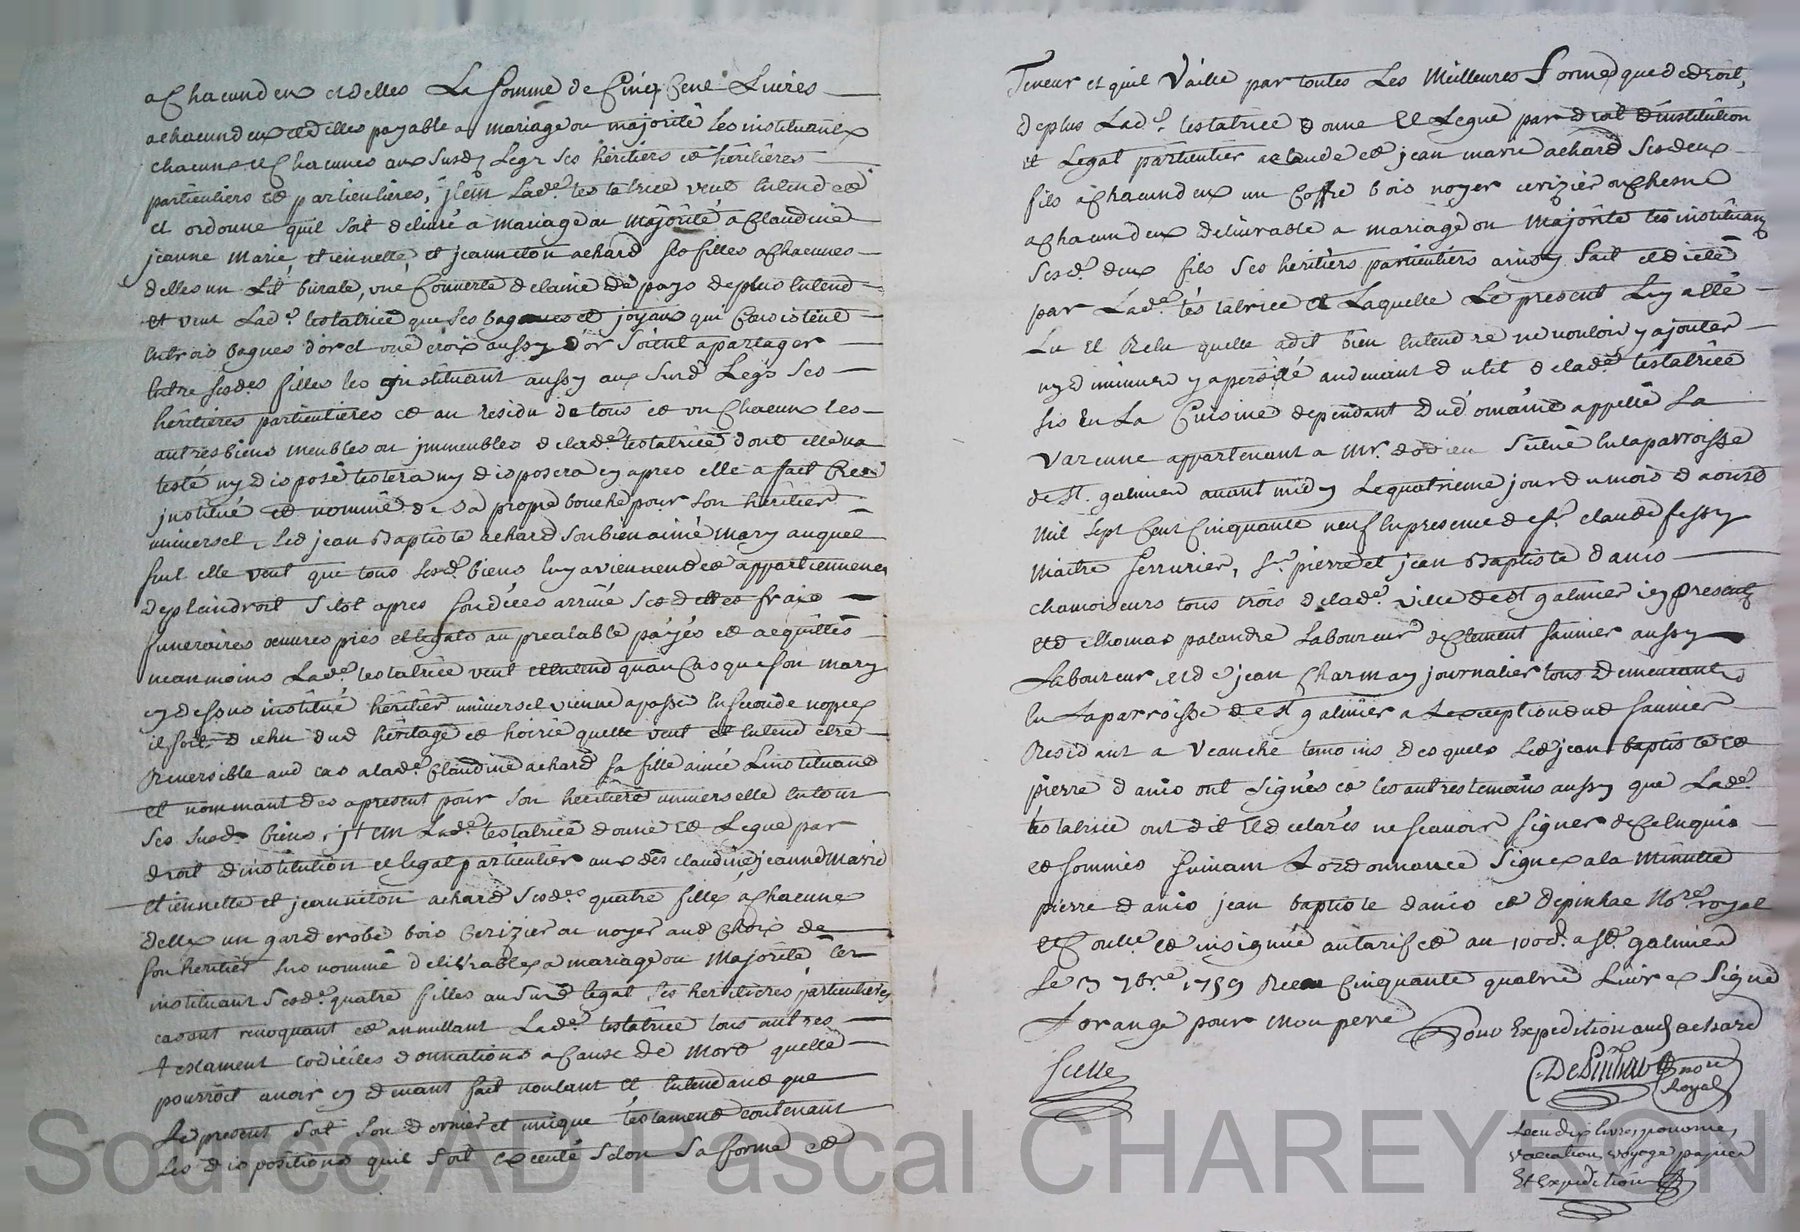 a Chacun deux et delles La somme de Cinq Cent Livres
a chacun deux et delles payable a mariage ou majorité les instituant
chacuns et Chacunes aux susd. Legs ses héritiers et héritières
particuliers et particulières, jtem Lade. testatrice veut Entend et
et ordonne quil soit delivré a mariage ou majorité a Claudine
jeanne Marie, etiennette, et jeanneton achard ses filles a Chacunes
delles un Lit burate, une Couverte de laine de pays de plus Entend
et veut Lade. testatrice que ses bagues et joyaux qui Consistent
En trois bagues d'or et une croix aussy d'or soient a partager
Entre sesdes. filles les jnstituant aussy aux susd. Legs ses
héritieres particulieres et au residu de tous et un Chacuns les
autres biens meubles ou jmmeubles de lade. testatrice dont elle na
testé ny disposé testera ny disposera cy apres elle a fait Créé
jnstitué et nommé de sa propre bouche pour son héritier
universel Led. jean Baptiste achard son bien aimé mary auquel
seul elle veut que tous sesd. biens luy aviennent et appartiennent
de plein droit sitot apres son décès arrivé ses dettes frais
funeraires œuvres pies et legats au prealable payés et acquittés
neanmoins Lade. testatrice veut et Entend quau Cas que son mary
cy dessus institué héritier universel vienne a passer En seconde nopces
il soit déchu dud. héritage et hoirie quelle veut et Entend etre
Reversible aud. cas a lade. Claudine achard sa fille ainée Linstituant
et nommant des a present pour son héritiere universelle En tous
ses susd. biens, jtem Lade. testatrice donne et Legue par
droit dinstitution et legat particulier aux des. claudine jeanne Marie
Etiennette et jeanneton achard sesdes. quatre filles a Chacune
delles un garderobe bois Cerizier ou noyer aud. Choix de
son heritier susnommé delivrables a mariage ou Majorité les
instituant sesde. quatre filles au susd. legat ses heritieres particulieres
cassant revoquant et annullant Lade. testatrice tous autres
testament codiciles donnations a Cause de Mort quelle
pourroit avoir cy devant fait voulant et Entendant que
Le present soit son dernier et unique testament contenant
ses dispositions quil soit executé selon sa forme et
Teneur et quil Vaille par toutes Les Meilleures formes que de droit,
de plus Lade. testatrice donne et Legue par droit d'institution
et Legat particulier a claude et jean marie achard ses deux
fils a Chacun deux un Coffre bois noyer cerizier ou Chesne
a Chacun deux delivrable a mariage ou Majorité les instituant
sesd. deux fils ses heritiers particuliers ainsy fait et dicté
par Lade. testatrice et Laquelle Le present Luy a eté
Lu et Relu quelle a dit bien Entendre ne vouloir y ajouter
ny diminuer au devant du lit de lade. testatrice
sis En La Cuisine dependant du d'omaine appellé La
Varenne appartenant a Mr. situé En la parroisse
de St. galmier avant midy Le quatrieme jour du mois d'aoust
Mil sept Cent Cinquante neuf En presence de sr. claude fessy
Maitre serrurier, sr. pierre et jean Baptiste danis
chamoiseurs tous trois de lade. ville de St galmier icy presents
et de thomas palandre Laboureur de Clement saunier aussy
Laboureur, et de jean Charmay journalier tous demeurant
En La parroisse de St galmier a Lexception dud. saunier
Residant a Veauche temoins desquels Led. jean baptiste et
pierre danis ont signés et les autres temoins aussy que Lade.
testatrice ont dit et declarés ne scavoir signer de Ce Enquis
et sommés suivant Lordonnance signé a la Minutte
pierre danis jean baptiste danis et depinhac Nore. royal
et Conlle. et insignué au tarif et au 100e. a St. galmier
Le 13 7bre. 1759 Reçu Cinquante quatre Livres signé
Lorange pour Mon pere
Pour Expedition aud. achard
scelle
DePinhac nore
Royal
Reçu dix livres pour mes
vacation voyage papier
Et expedition
Source AD Pascal CHAREYRON